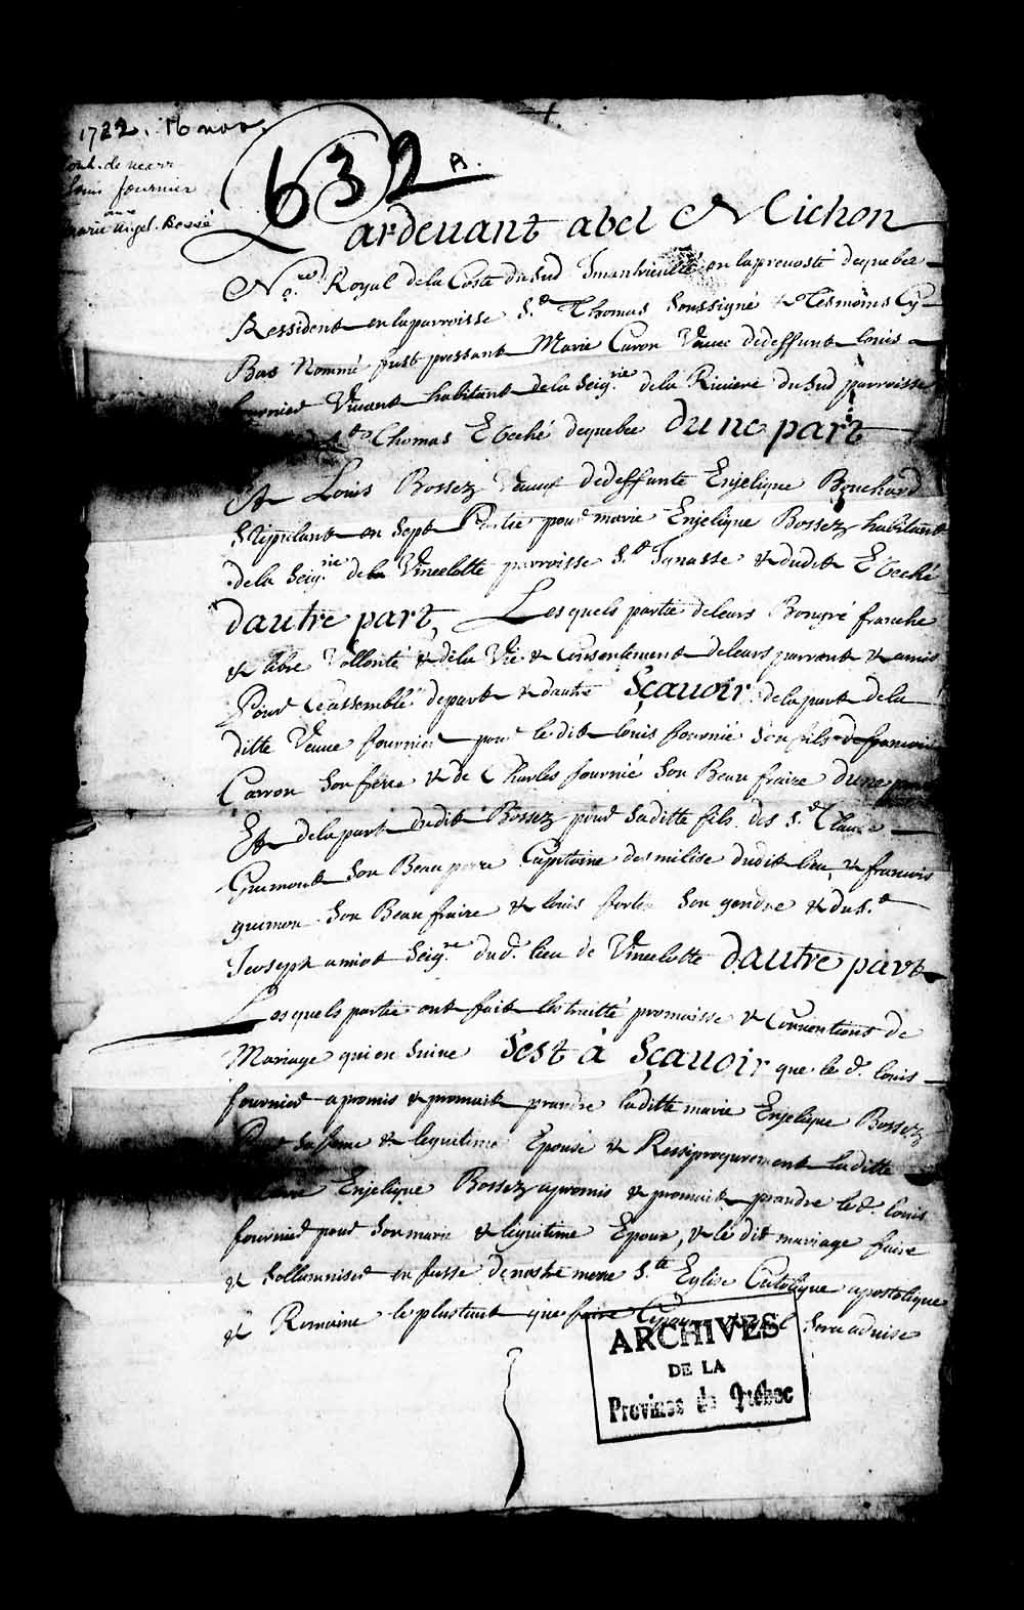 1722. 16 nov.
cont. de mari
Louis fournier
avec
marie angel. Bossé
632
A.
Pardeuant abel Michon
No.re Royal dela Coste du Sud Jmantriculée en la preuosté dequebec
Ressident en la parroisse S.t Thomas Soussigné & Tesmoins Cy
Bas Nommé fust pressant Marie Caron Veuue dedeffunt louis
fournier Viuant habitant dela Seig.rie dela Riuiere du Sud parroisse
S.t Thomas Eveché dequebec dune part
Et Louis Bossez Veuuf dedeffunte Enjelique Bouchard
Stipulant en Sept Partie pour marie Enjelique Bossez habitant
dela Seig.rie de Vincelotte parroisse S.t Jgnasse & dudit Eveché
dautre part, Lesquels partie deleurs Bongré franche
& libre Vollonté & dela Vie & Consentement deleurs parrent & amis
Pour Ceassemblé depart & dautre Sçauoir dela part dela
ditte Veuue fournier pour ledit louis fournié Son fils de francois
Carron Son frere & de Charles fournié Son Beau fraire dune part
Et dela part dudit Bossez pour Saditte fils des S.r Claude
Guimont Son Beau pere Capitaine des milise dudit lieu, & francois
guimon Son Beau fraire & louis fortin Son gendre & du S.r
Jeoseph amiot Seig.re dud. lieu de Vincelotte dautre part
Lesquels partie ont fait les traitté promaisse & Conuentions de
Mariage qui en Suiue Sest à Sçauoir que le d. louis
fournier a promis & promait prandre laditte marie Enjelique Bossez
Pour Safame & legitime Epouse & Ressiproquement laditte
Enjelique Bossez a promis & promait prandre le d. louis
fournier pour Son marie & ligitime Epoux, & le dit mariage faire
& Sollamniser en fasse de nostre mere S.te Eglise Catolique apostolique
& Romaine le plustaut que faire Sera aduise
ARCHIVES
DE LA
Province de Québec